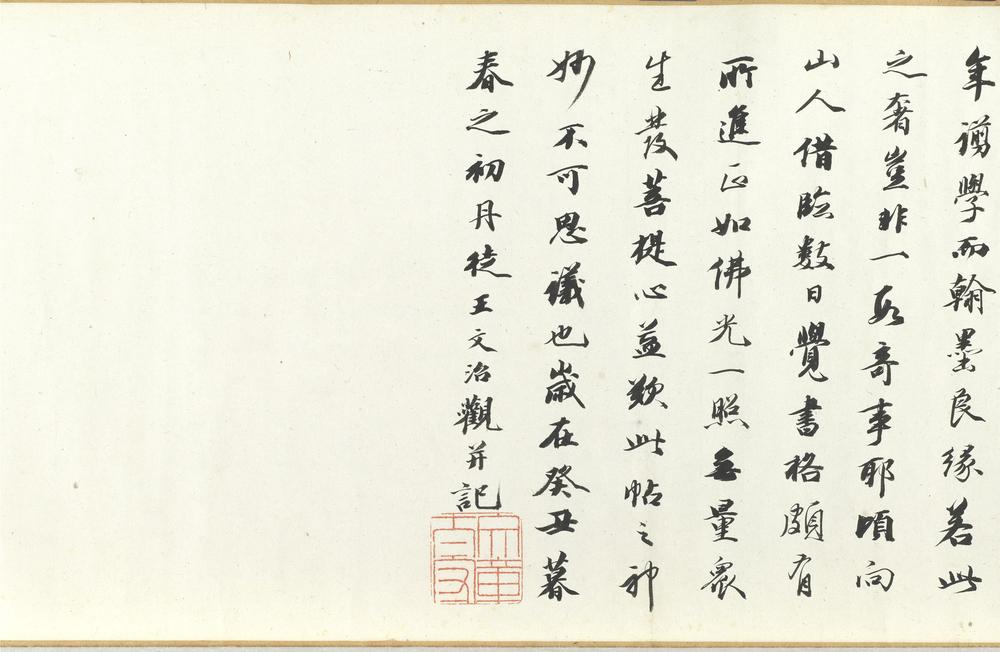 年謭學而翰墨良緣若此
之奢豈非一段奇事耶頃向
山人借臨數日覺書格頗有
所進正如佛光一照無量衆
生發菩提心益歎此帖之神
妙不可思議也歲在癸丑暮
春之初丹徒王文治觀并記